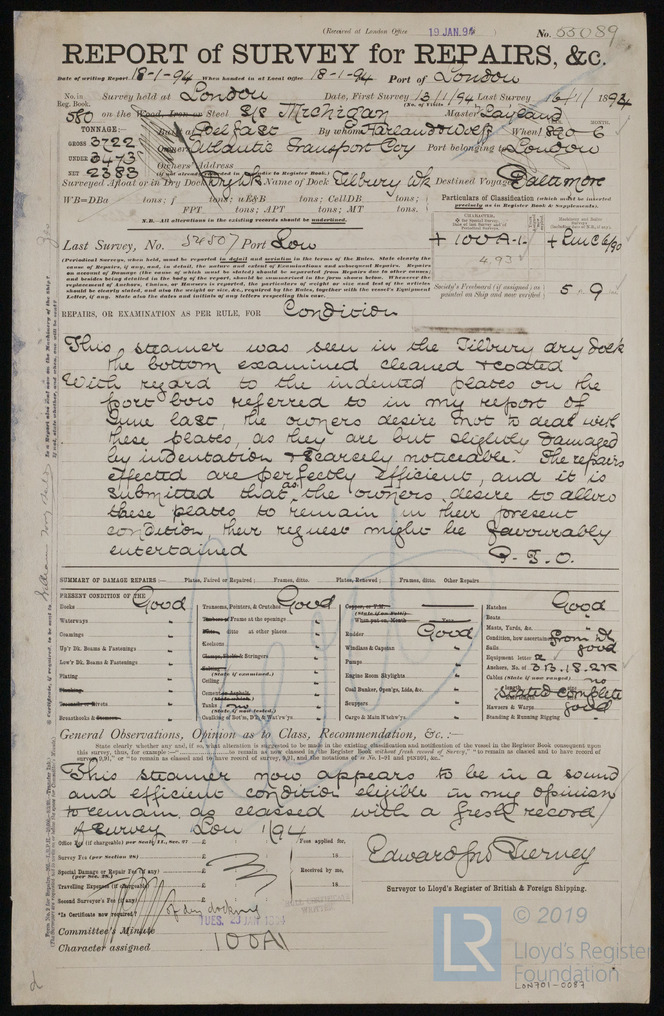 (Received at London Office 19 JAN. 94 )
No. 55089
REPORT of SURVEY for REPAIRS, &c.
Date of writing Report 18-1-94 When handed in at Local Office 18-1-94 Port of London
No. in Reg. Book. Survey held at London Date, First Survey 13/1/94 Last Survey 16/1/ 1894
(No. of Visits )
580 on the Wood, Iron or Steel S/S Michigan Master Layland
TONNAGE:— Built at Belfast By whom Harland & Wolff When 1890-6
MONTH.
GROSS 3722 Owners Atlantic Transport Coy Port belonging to London
UNDER 3473 Owners' Address
NET 2383 (if not already recorded in Appendix to Register Book.)
Surveyed Afloat or in Dry Dock Dry Dk Name of Dock Tilbury Dk Destined Voyage Baltimore
WB=DBa tons; f tons; uE&B tons; CellDB tons;
FPT tons; APT tons; MT tons.
N.B.—All alterations in the existing records should be underlined.
Particulars of Classification (which must be inserted precisely as in Register Book & Supplements).
Last Survey, No. 54507 Port Lon
+ 100A-1-
4.93
+ LMC 6/90
(Periodical Surveys, when held, must be reported in detail and seriatim in the terms of the Rules. State clearly the cause of Repairs, if any, and, in detail, the nature and extent of Examinations and subsequent Repairs. Repairs on account of Damage (the cause of which must be stated) should be separated from Repairs due to other causes;
Society's Freeboard (if assigned) as painted on Ship and now verified
5 9
REPAIRS, OR EXAMINATION AS PER RULE, FOR Condition
This steamer was seen in the Tilbury dry dock
the bottom examined cleaned & coated
With regard to the indented plates on the
port bow referred to in my report of
June last, the owners desire not to deal with
these plates, as they are but slightly damaged
by indentation & scarcely noticeable. The repairs
effected are perfectly efficient, and it is
submitted that as the owners desire to allow
these plates to remain in their present
condition, their request might be favourably
entertained P.T.O.
SUMMARY OF DAMAGE REPAIRS:— Plates, Faired or Repaired; Frames, ditto. Plates, Renewed; Frames, ditto. Other Repairs
PRESENT CONDITION OF THE
Decks Good
Waterways "
Coamings "
Up'r Dk. Beams & Fastenings "
Low'r Dk. Beams & Fastenings "
Plating "
Planking
Breasthooks &
Transoms, Pointers, & Crutches Good
Frames at the openings
ditto at other places
Keelsons
Stringers
(State if examined.)
Ceiling
Cement
Tanks no
(State if now tested.)
Caulking of Bot'm, D'k, & Wat'rw'ys
Copper, or Y.M.
(State if on Felt)
When put on, Month Year
Rudder Good
Windlass & Capstan
Pumps
Engine Room Skylights
Coal Bunker, Open'gs, Lids, &c.
Scuppers
Cargo & Main H'tchw'ys
Hatches Good
Boats "
Masts, Yards, &c. "
Condition, how ascertained from Dk
Sails good
Equipment letter
Anchors, No. of 3 B. 1 S. 2 K
Cables (State if now ranged) no
stated complete
Hawsers & Warps good
Standing & Running Rigging "
General Observations, Opinion as to Class, Recommendation, &c. :—
State clearly whether any, and if so, what alteration is suggested to be made in the existing classification and notification of the vessel in the Register Book consequent upon this survey, thus, for example
This steamer now appears to be in a sound
and efficient condition eligible in my opinion
to remain as classed with a fresh record
of survey Lon 1/94
Office Fee (if chargeable) per Scale II., Sec. 27 £
Survey Fee (per Section 28) £
Special Damage or Repair Fee (if any) £
(per Sec. 28.)
Travelling Expenses (if chargeable) £
Second Surveyor's Fee (if any) £
Fees applied for, 18
Received by me, 18
Edward Jno Tierney
Surveyor to Lloyd's Register of British & Foreign Shipping.
*Is Certificate now required?
of dry docking
Committee's Minute TUES. 23 JAN 1894
Character assigned 100A1
© 2019
LR
Lloyd's Register
Foundation
LON701-0087